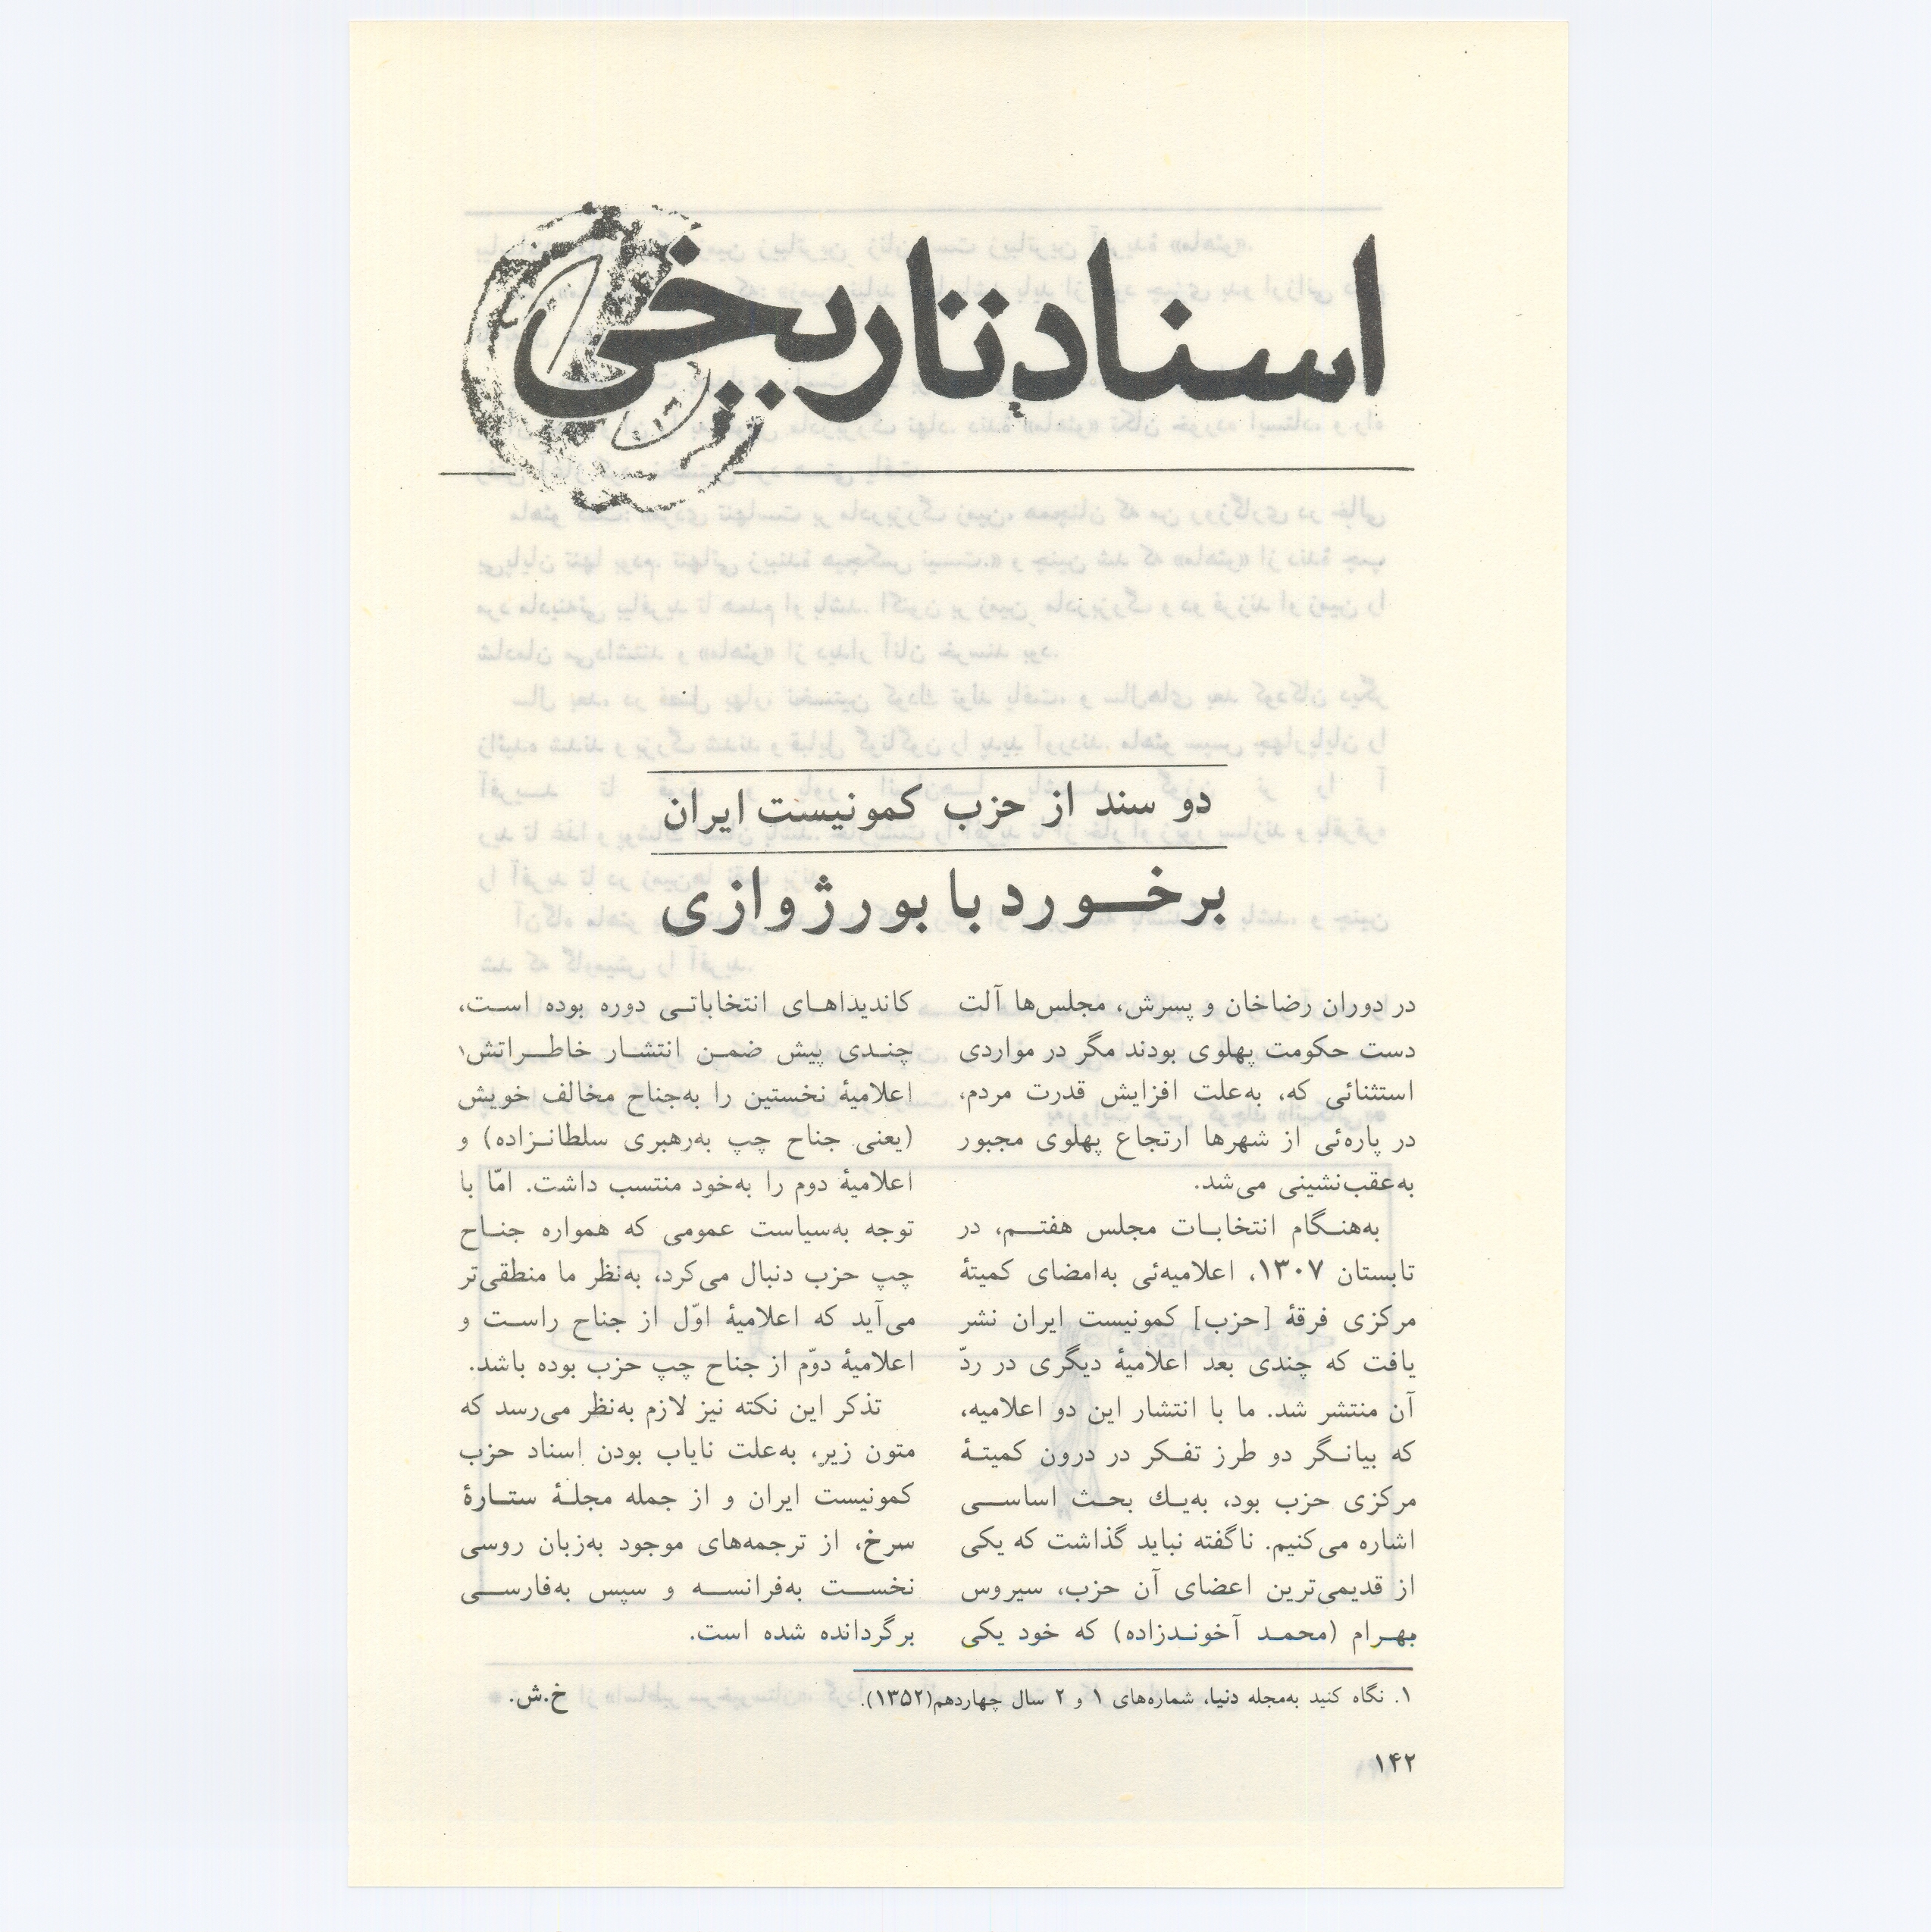 اسناد تاریخی
دو سند از حزب کمونیست ایران
برخورد با بورژوازی
در دوران رضاخان و پسرش، مجلس‌ها آلت
دست حکومت پهلوی بودند مگر در مواردی
استثنائی که، به‌علت افزایش قدرت مردم،
در پاره‌ئی از شهرها ارتجاع پهلوی مجبور
به‌عقب‌نشینی می‌شد.
به‌هنگام انتخابات مجلس هفتم، در
تابستان ۱۳۰۷، اعلامیه‌ئی به‌امضای کمیتهٔ
مرکزی فرقهٔ [حزب] کمونیست ایران نشر
یافت که چندی بعد اعلامیهٔ دیگری در ردّ
آن منتشر شد. ما با انتشار این دو اعلامیه،
که بیانگر دو طرز تفکر در درون کمیتهٔ
مرکزی حزب بود، به‌یك بحث اساسی
اشاره می‌کنیم. ناگفته نباید گذاشت که یکی
از قدیمی‌ترین اعضای آن حزب، سیروس
بهرام (محمد آخوندزاده) که خود یکی
کاندیداهای انتخاباتی دوره بوده است،
چندی پیش ضمن انتشار خاطراتش۱
اعلامیهٔ نخستین را به‌جناح مخالف خویش
(یعنی جناح چپ به‌رهبری سلطانزاده) و
اعلامیهٔ دوم را به‌خود منتسب داشت. امّا با
توجه به‌سیاست عمومی که همواره جناح
چپ حزب دنبال می‌کرد، به‌نظر ما منطقی‌تر
می‌آید که اعلامیهٔ اوّل از جناح راست و
اعلامیهٔ دوّم از جناح چپ حزب بوده باشد.
تذکر این نکته نیز لازم به‌نظر می‌رسد که
متون زیر، به‌علت نایاب بودن اسناد حزب
کمونیست ایران و از جمله مجلهٔ ستارهٔ
سرخ، از ترجمه‌های موجود به‌زبان روسی
نخست به‌فرانسه و سپس به‌فارسی
برگردانده شده است.
خ.ش.
۱. نگاه کنید به‌مجله دنیا، شماره‌های ۱ و ۲ سال چهاردهم(۱۳۵۲).
۱۴۲